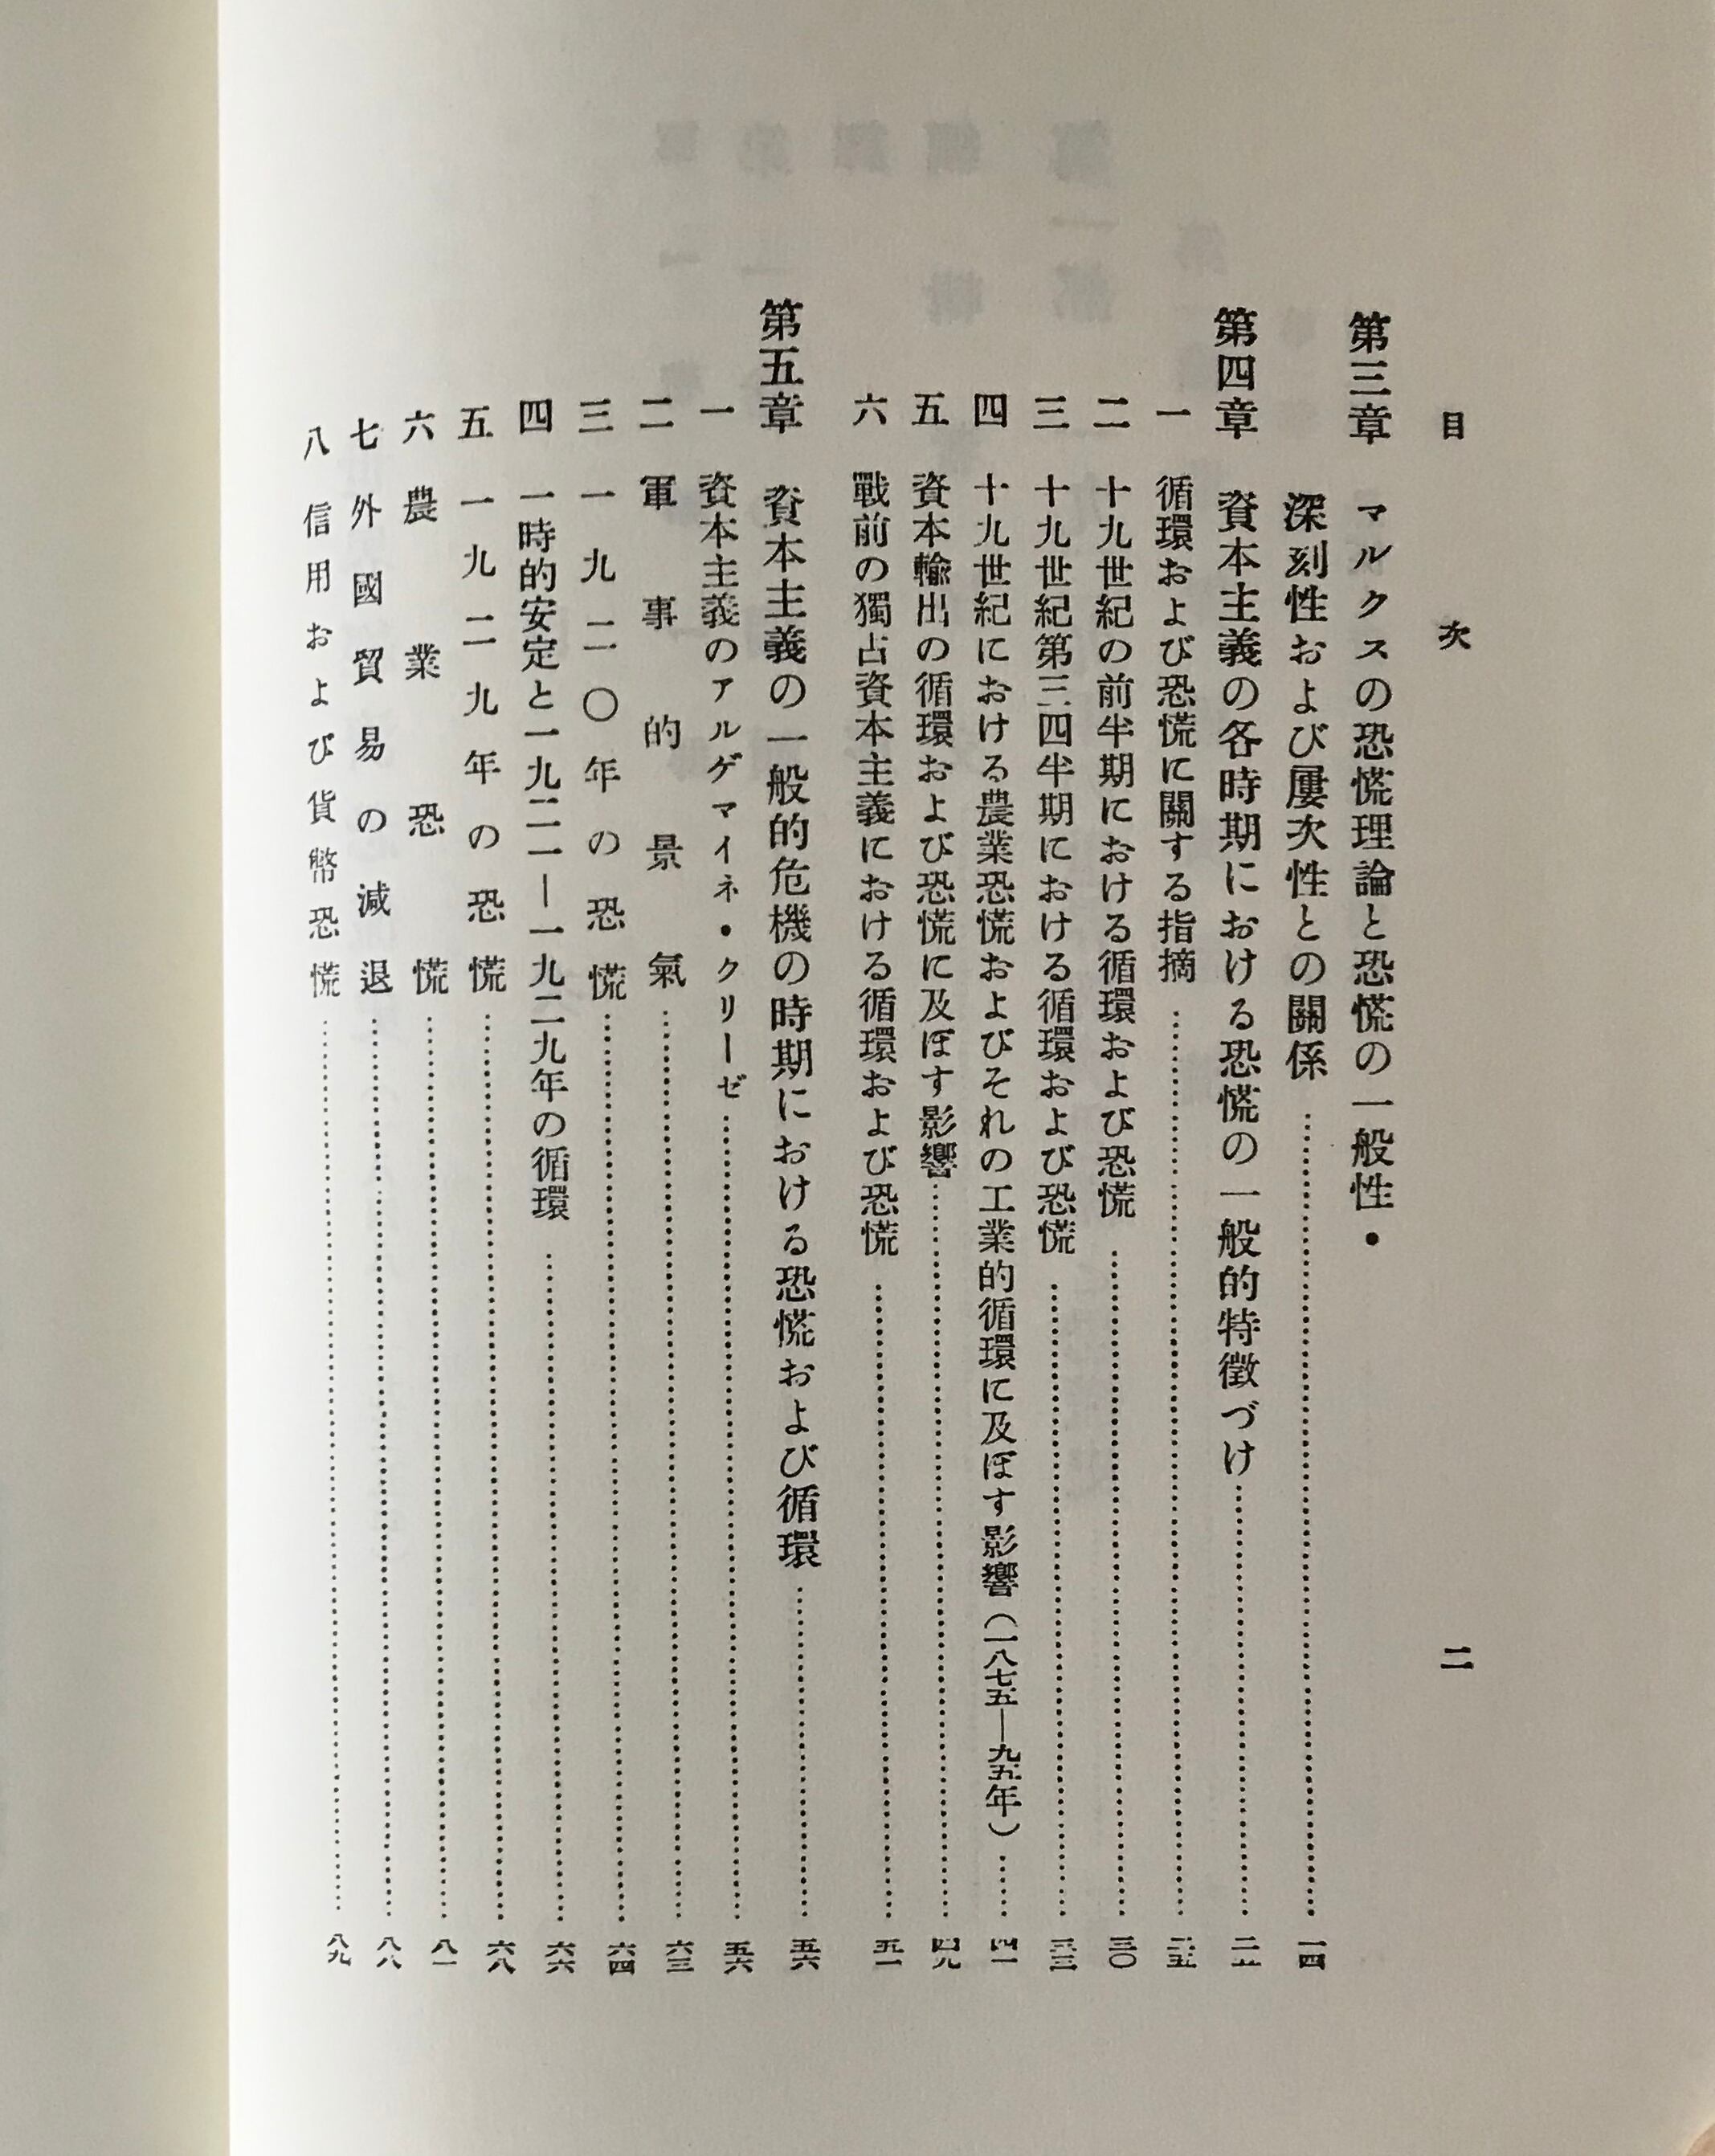 目次 二
第三章 マルクスの恐慌理論と恐慌の一般性・
深刻性および屢次性との關係……一四
第四章 資本主義の各時期における恐慌の一般的特徵づけ……二五
一 循環および恐慌に關する指摘……二五
二 十九世紀の前半期における循環および恐慌……三〇
三 十九世紀第三四半期における循環および恐慌……三三
四 十九世紀における農業恐慌およびそれの工業的循環に及ぼす影響（一八七五―九五年）……四一
五 資本輸出の循環および恐慌に及ぼす影響……四九
六 戰前の獨占資本主義における循環および恐慌……五一
第五章 資本主義の一般的危機の時期における恐慌および循環……五六
一 資本主義のアルゲマイネ・クリーゼ……五六
二 軍事的景氣……六三
三 一九二〇年の恐慌……六四
四 一時的安定と一九二一―一九二九年の循環……六六
五 一九二九年の恐慌……六八
六 農業恐慌……八一
七 外國貿易の減退……八八
八 信用および貨幣恐慌……八九